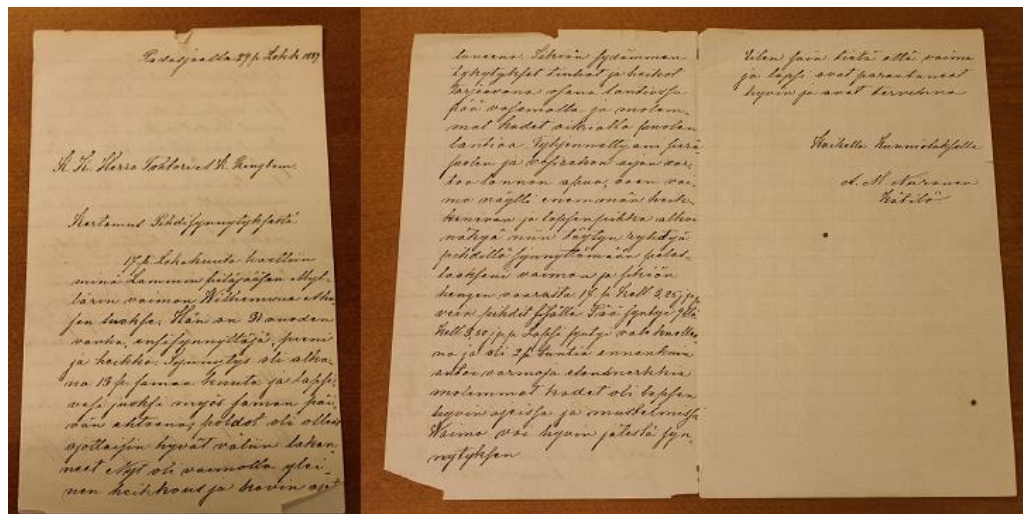 Padasjoella 29 p. Lokk 1889
K. K. Herra Tohtori
Kertomus Pihdisynnytyksestä
17 p. Lokakuuta haettiin
minä Lammin pitäjääsen Myl-
lärin vaimon Wilhelmiina
sen luokse. Hän on 31 vuoden
vanha, ensisynnyttäjä, pieni
ja heikko. Synnytys oli alka-
na 15 p. samaa kuuta ja Lapsi-
vesi juoksi myös saman päi-
vän ehtoona, poldot oli olleet
ajottaisin hyvät väliin laken
neet Nyt oli vaimolla ylei-
nen heikkous ja kovin
luneena. Sikiön sydämmen
tykytykset tiuhat ja heikot
tarjoavana osana lantiossa
pää vasemalla ja molem-
mat kädet oikialla puolen
lantiaa. Tyhjennetty perä
suolen ja
toa lannon apua, vaan vai-
mo näytti enemmän heik-
kenevän ja lapsen pihka alkoi
näkyä niin täytyi ryhtyä
pihdillä synnyttämään pelas-
taakseni vaimon ja sikiön
hengen vaarasta 17 p. kell 3,25 j.p.p.
vein pihdit sisälle Pää syntyi
kell. 3,50 j.p.p. Lapsi syntyi valekuollee-
na ja oli 2 tuntia ennenkuin
antoi varmoja elonmerkkiä
molemmat kädet oli lapsen
hyvin ajeissa ja mustelmissa
Vaimo voi hyvin jälestä syn-
nytyksen
Eilen sain tietä että vaimo
ja lapsi ovat parantuneet
hyvin ja ovat terveenna
Kaikella Kunnioituksella
A. M. Nuronen
Kätilö